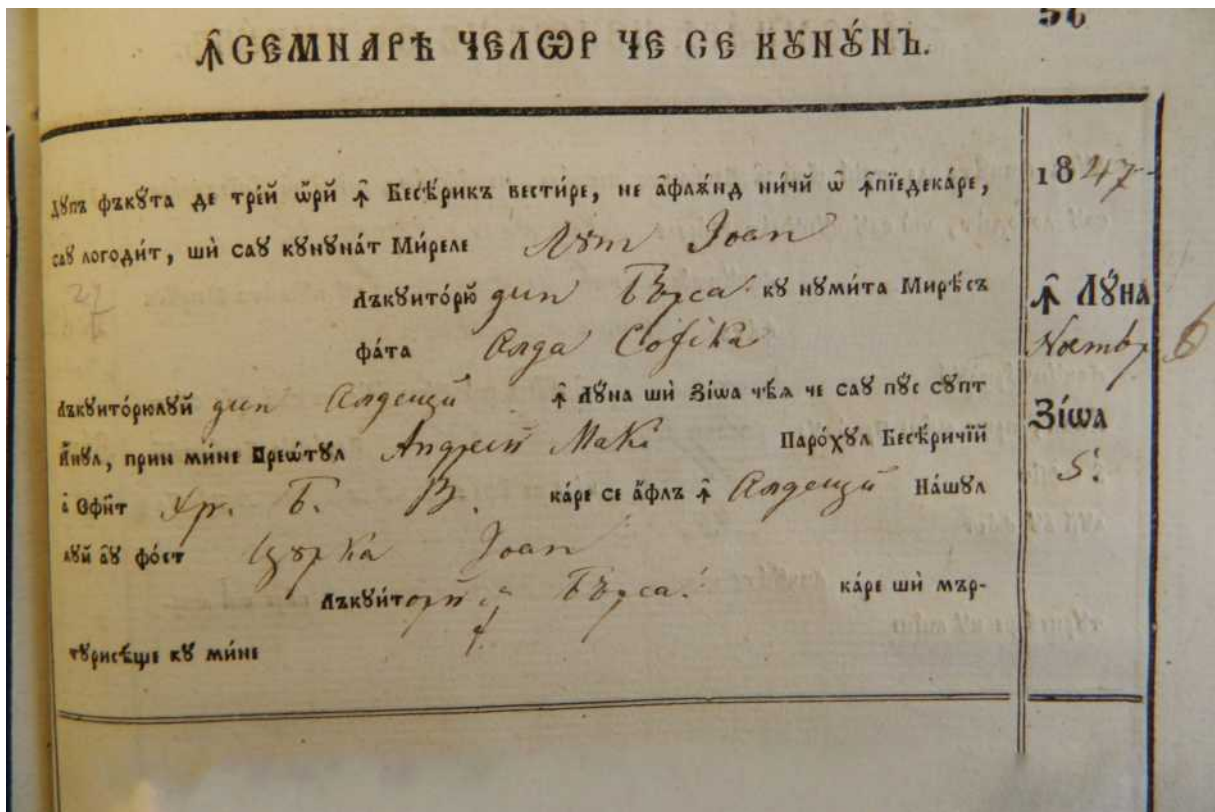 56
Ꙟ СЕМНАРѢ ЧЕЛѠР ЧЕ СЕ КꙊНꙊ́НЪ.
ДꙊпъ фъкꙋта де трі́й ѡ҆рй ꙟ Бесѣ́рикъ вести́ре, не а҆фла́нд ни́чй ѡ҆ ꙟпїедека́ре,
саꙋ логоди́т, шѝ саꙋ кꙋнꙋна́т Ми́реле Лꙋт Іоан
Лъкꙋито́рю̆ дин Бърса кꙋ нꙋми́та Мирѣ́съ
фа́та Алда Софіка
Лъкꙋито́рюлꙋй дин Алдещй ꙟ лꙋ́на шѝ Зі́ѡа чѣ́ѧ че саꙋ пꙋ́с сꙋпт
а҆нꙋл, прин ми́не Прею́тꙋл Андреи Маки Паро́хꙋл Бесѣричі́й
а҆ Сфи́нт Хр. Б. В. ка́ре се а҆́флъ ꙟ Алдещй На́шꙋл
лꙋй аꙋ̆ фо́ст Цꙋрка Іоан
Лъкꙋиторй Бърса ка́ре шѝ мър-
тꙋрисѣ́ще кꙋ ми́не
1847
ꙟ Лꙋ́на
Ноембр
Зі́ѡа